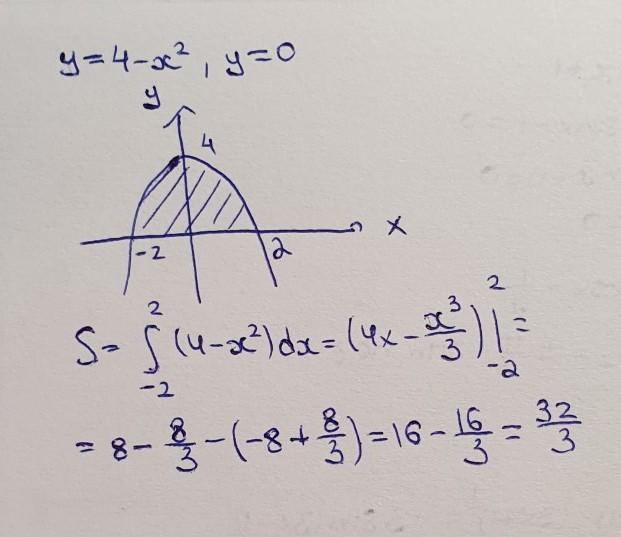 y=4-x², y=0
y
4
-2
2
x
S= ∫_{-2}^{2} (4-x²)dx= (4x - x³/3) |_{-2}^{2} =
= 8 - 8/3 - (-8 + 8/3) = 16 - 16/3 = 32/3